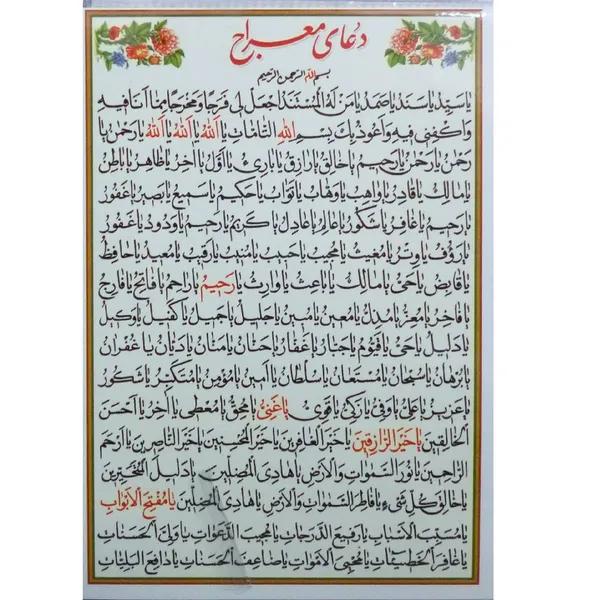 دعای معراج
بسم الله الرحمن الرحیم
یا سَیِّدُ یا سَنَدُ یا صَمَدُ یا مَنْ لَهُ الْمُسْتَنَدُ اِجْعَلْ لی فَرَجًا وَ مَخْرَجًا مِمّا اَنَا فیهِ
وَ اکْفِنی فیهِ وَ اَعُوذُ بِكَ بِسْمِ اللهِ التّامّاتِ یا اَللهُ یا اَللهُ یا اَللهُ یا رَحْمنُ یا
رَحْمنُ یا رَحْمنُ یا رَحیمُ یا خالِقُ یا رازِقُ یا بارِئُ یا اَوَّلُ یا آخِرُ یا ظاهِرُ یا باطِنُ
یا مالِكُ یا قادِرُ یا واهِبُ یا وَهّابُ یا تَوّابُ یا حَکیمُ یا سَمیعُ یا بَصیرُ یا غَفُورُ
یا رَحیمُ یا غافِرُ یا شَکُورُ یا عالِمُ یا عادِلُ یا کَریمُ یا رَحیمُ یا وَدُودُ یا غَفُورُ
یا رَؤُفُ یا وِتْرُ یا مُغیثُ یا مُجیبُ یا حَبیبُ یا مُنیبُ یا رَقیبُ یا مُعیدُ یا حافِظُ
یا قابِضُ یا حَیُّ یا مالِكُ یا باعِثُ یا وارِثُ یا رَحیمُ یا راحِمُ یا فاتِحُ یا فارِجُ
یا فاخِرُ یا مُعِزُّ یا مُذِلُّ یا مُعینُ یا مُبینُ یا جَلیلُ یا جَمیلُ یا کَفیلُ یا وَکیلُ
یا دَلیلُ یا حَیُّ یا قَیُّومُ یا جَبّارُ یا غَفّارُ یا حَنّانُ یا مَنّانُ یا دَیّانُ یا غُفْرانُ
یا بُرْهانُ یا سُبْحانُ یا مُسْتَعانُ یا سُلْطانُ یا اَمینُ یا مُؤْمِنُ یا مُتَکَبِّرُ یا شَکُورُ
یا عَزیزُ یا عَلِیُّ یا وَفِیُّ یا زَکِیُّ یا قَوِیُّ یا غَنِیُّ یا مُحِقُّ یا مُعْطی یا آخِرُ یا اَحْسَنَ
الْخالِقینَ یا خَیْرَ الرّازِقینَ یا خَیْرَ الْغافِرینَ یا خَیْرَ الْمُحْسِنینَ یا خَیْرَ النّاصِرینَ یا اَرْحَمَ
الرّاحِمینَ یا نُورَ السَّمواتِ وَ الْاَرْضِ یا هادِیَ الْمُضِلّینَ یا دَلیلَ الْمُتَحَیِّرینَ
یا خالِقَ کُلِّ شَیْءٍ یا فاطِرَ السَّمواتِ وَ الْاَرْضِ یا هادِیَ الْمُضِلّینَ یا مُفَتِّحَ الْاَبْوابِ
یا مُسَبِّبَ الْاَسْبابِ یا رَفیعَ الدَّرَجاتِ یا مُجیبَ الدَّعَواتِ یا وَلِیَّ الْحَسَناتِ
یا غافِرَ الْخَطیئاتِ یا مُحْیِیَ الْاَمْواتِ یا ضاعِفَ الْحَسَناتِ یا دافِعَ الْبَلِیّاتِ